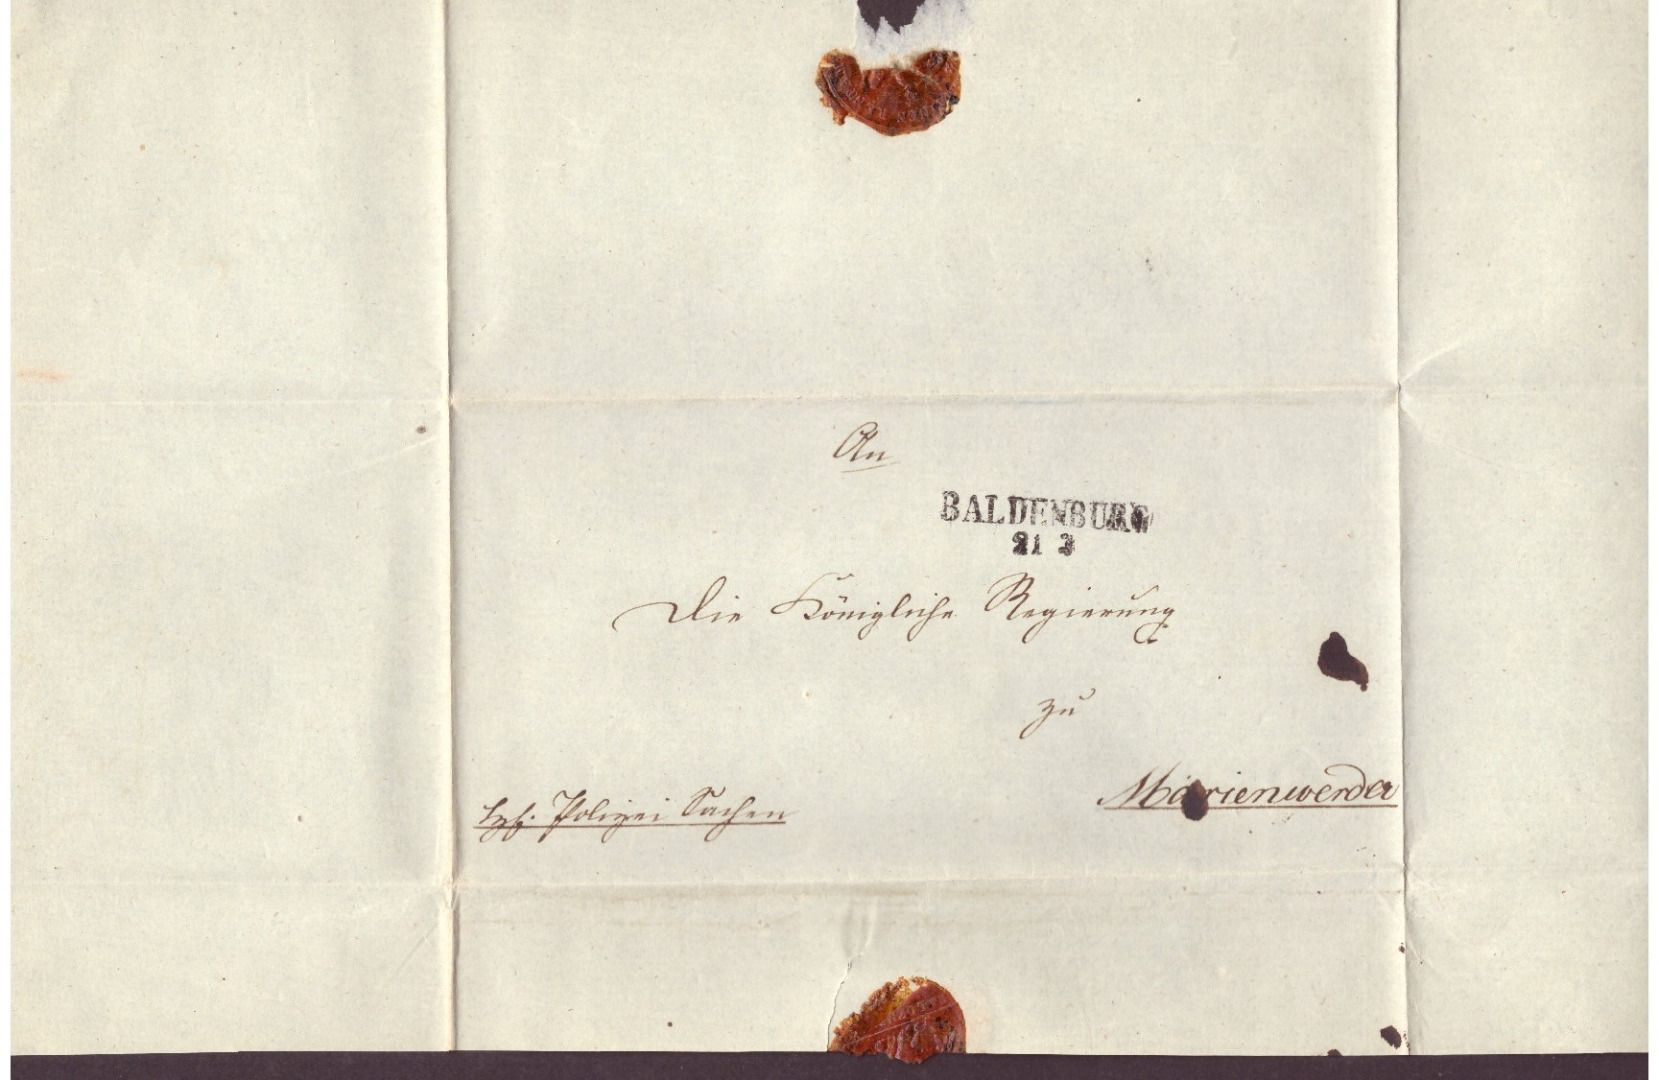 An
BALDENBURG
21 3
Die Königliche Regierung
zu
Marienwerder
Polizei Sachen